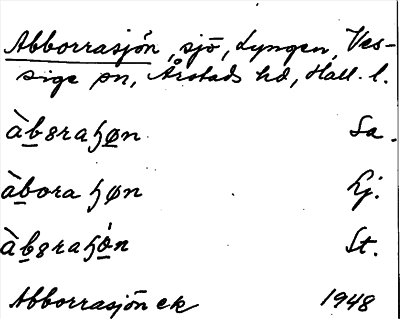 Abborrasjön, sjö, Lyngen, Ves-
sige sn, Årstads hd, Hall. l.
àbɞraɧøn Sa.
àbora ɧøn Lj.
àbɞraɧǿn St.
Abborrasjön ek 1948